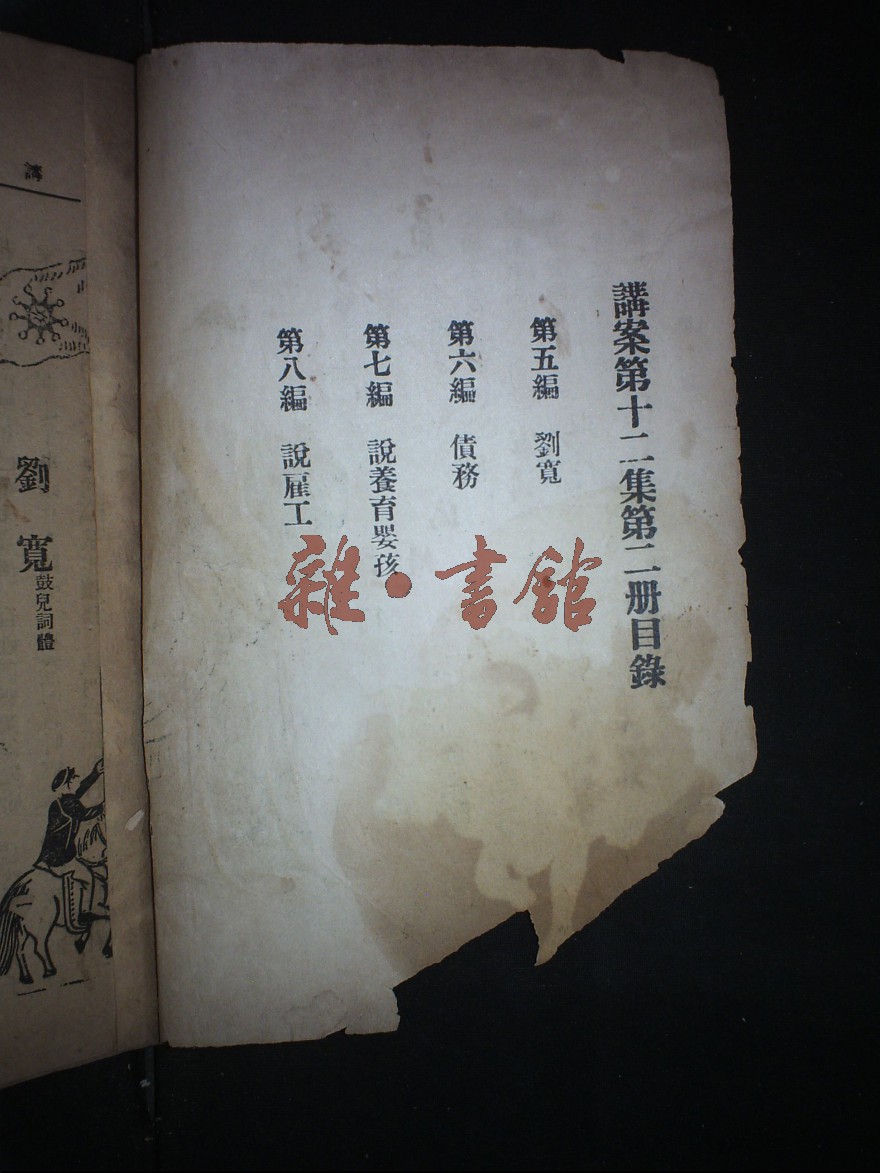 講案第十二集第二册目錄
第五編 劉寬
第六編 債務
第七編 說養育嬰孩
第八編 說雇工
雜·書館
講
劉寬 鼓兒詞體